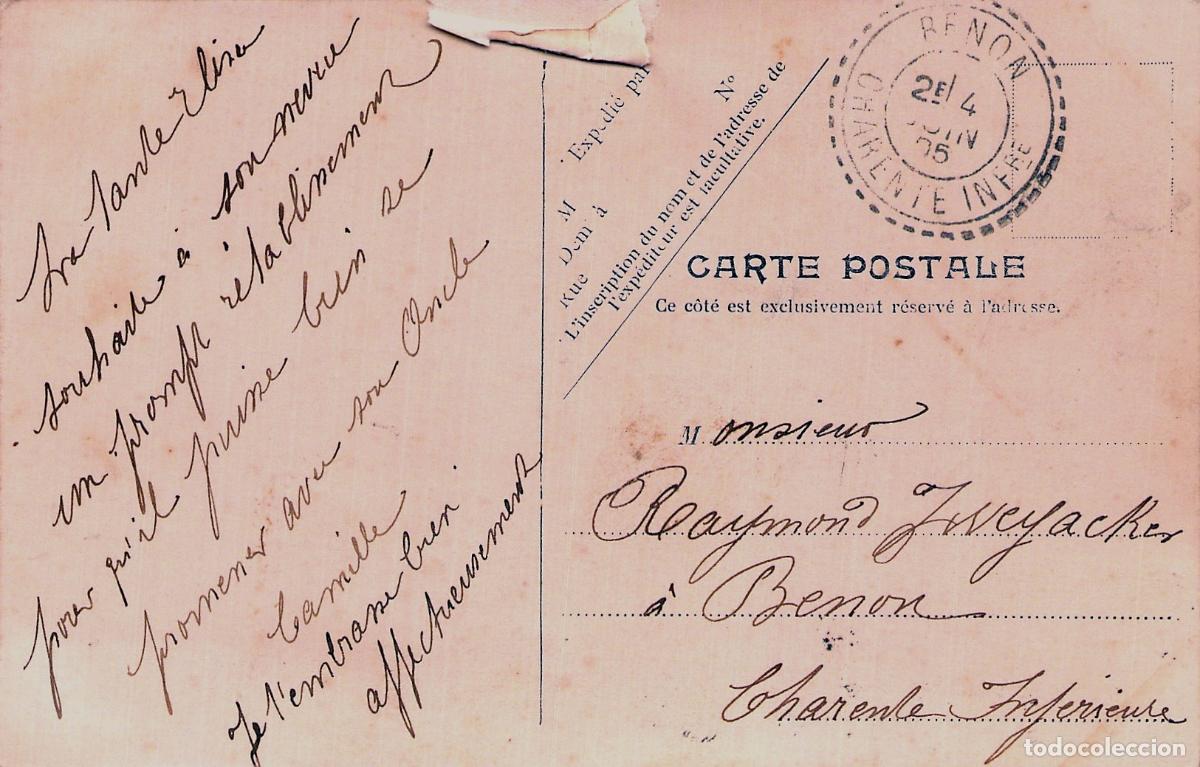 Ta Tante Elisa
souhaite à son neveu
un prompt rétablissement
pour qu'il puisse bien se
promener avec son Oncle
Camille
Je t'embrasse bien
affectueusement
Nº
Expédié par
M
Dem à
Rue
L'inscription du nom et de l'adresse de
l'expéditeur est facultative.
BENON
2E/ 4
JUIN
05
CHARENTE INFRE
CARTE POSTALE
Ce côté est exclusivement réservé à l'adresse.
Monsieur
Raymond
à Benon
Charente Inférieure
todocoleccion